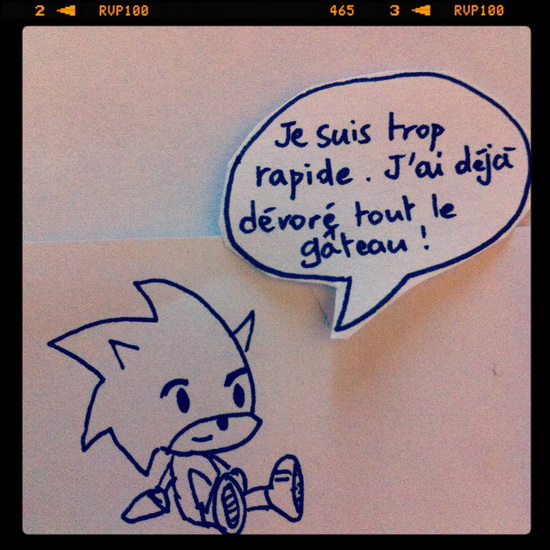 2 RVP100 465 3 RVP100
Je suis trop
rapide. J'ai déjà
dévoré tout le
gâteau !